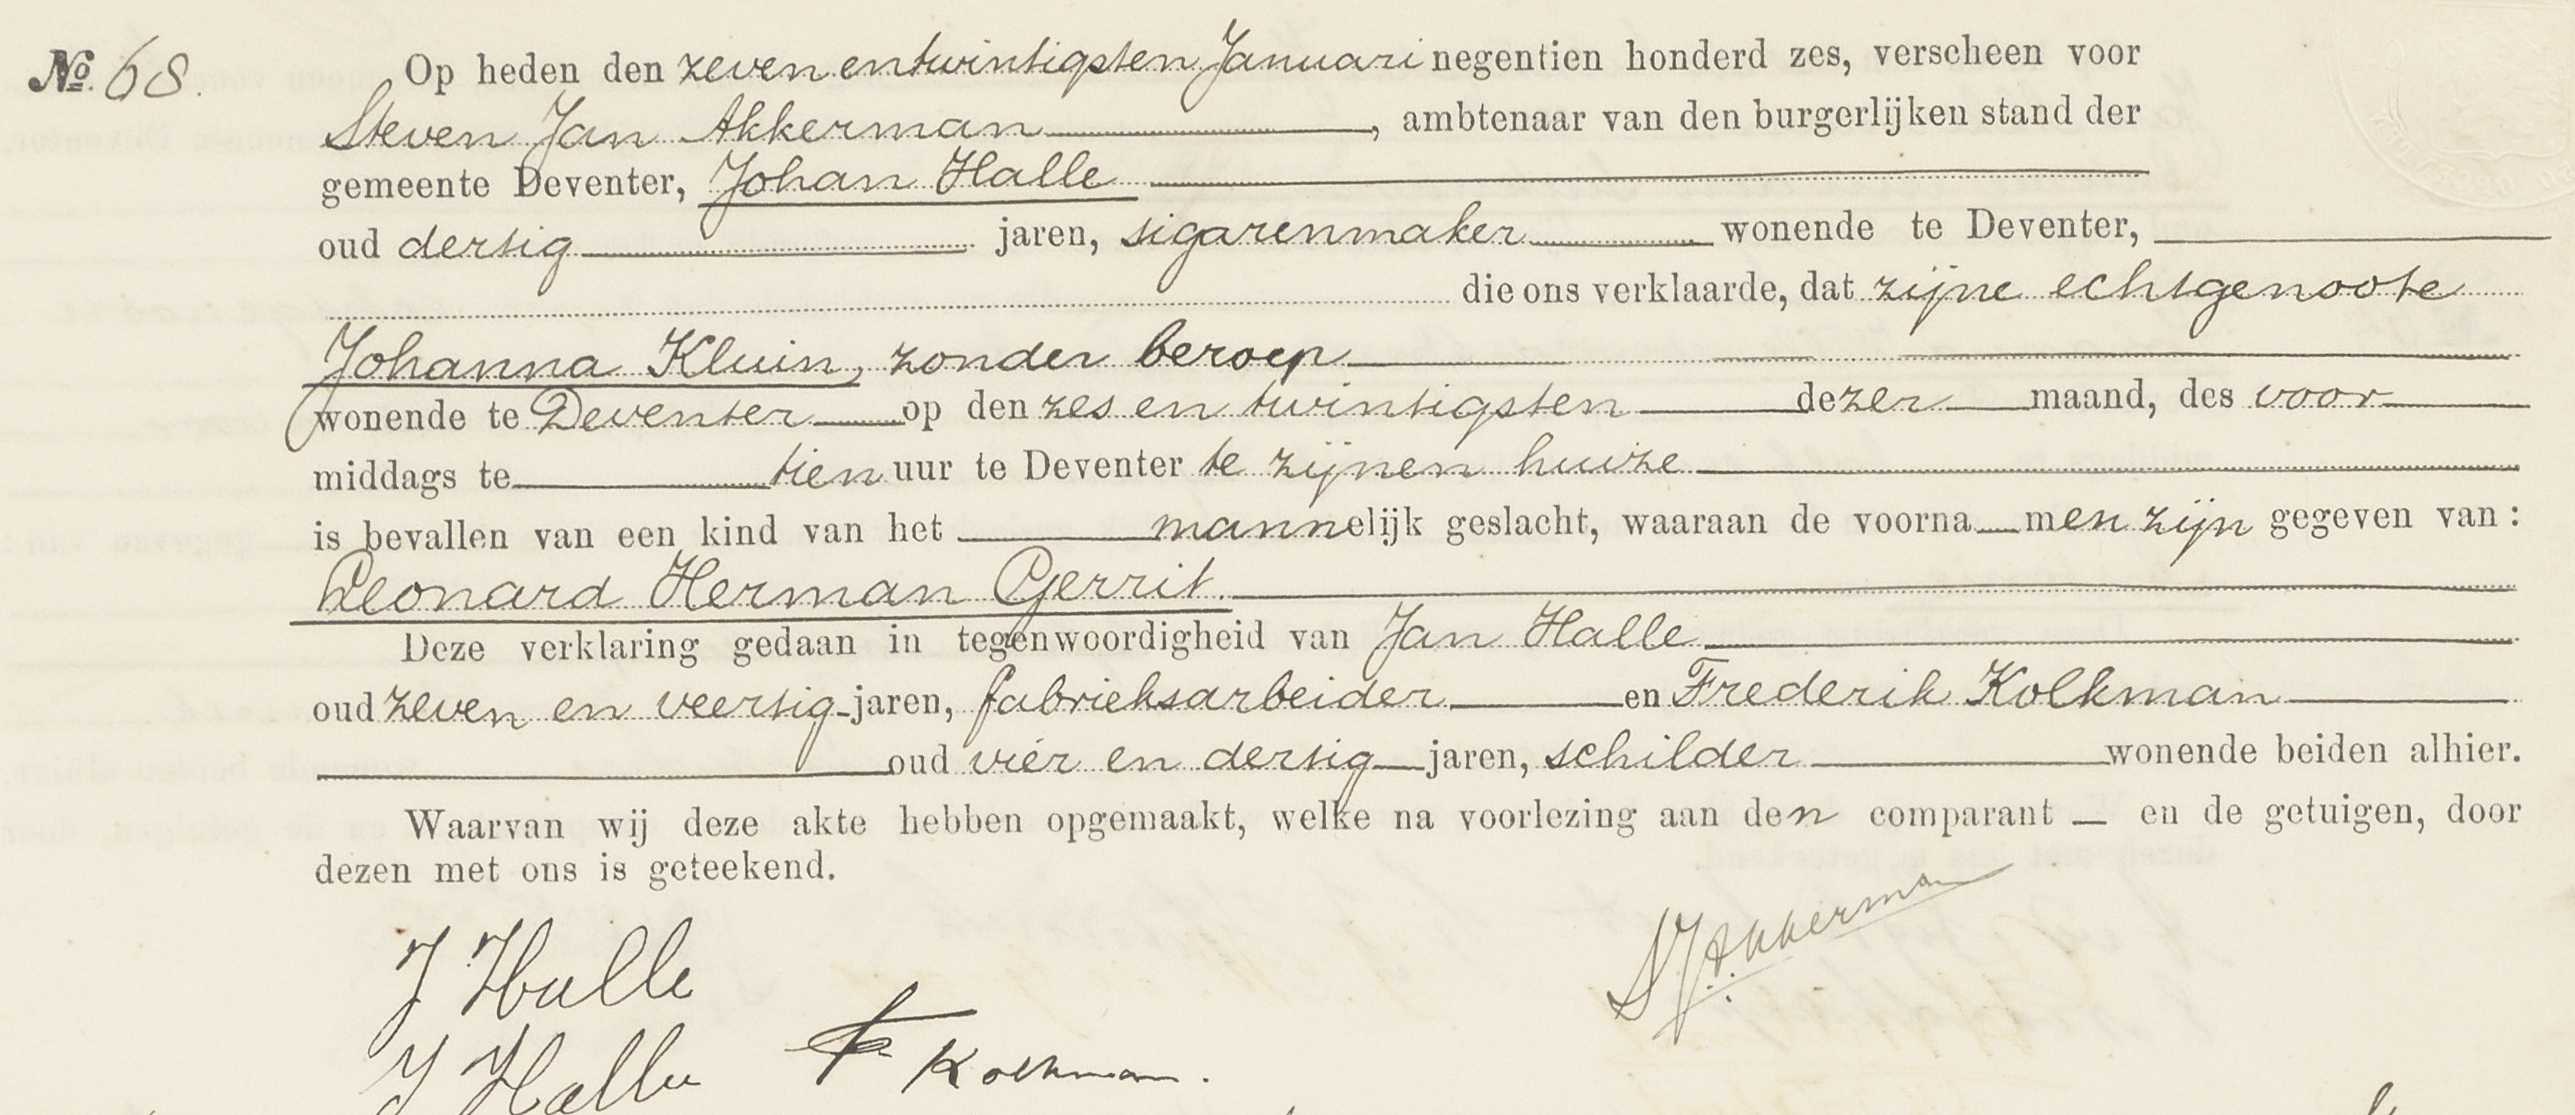 No. 68. Op heden den zeven en twintigsten Januari negentien honderd zes, verscheen voor
Steven Jan Akkerman, ambtenaar van den burgerlijken stand der
gemeente Deventer, Johan Halle
oud dertig jaren, sigarenmaker wonende te Deventer,
die ons verklaarde, dat zijne echtgenoote
Johanna Kluin, zonder beroep
wonende te Deventer op den zes en twintigsten dezer maand, des voor
middags te tien uur te Deventer te zijnen huize
is bevallen van een kind van het mannelijk geslacht, waaraan de voorna men zijn gegeven van:
Leonard Herman Gerrit.
Deze verklaring gedaan in tegenwoordigheid van Jan Halle
oud zeven en veertig jaren, fabrieksarbeider en Frederik Kolkman
oud vier en dertig jaren, schilder wonende beiden alhier.
Waarvan wij deze akte hebben opgemaakt, welke na voorlezing aan den comparant — en de getuigen, door
dezen met ons is geteekend.
SJAkkerman
J Halle
J Halle
F Kolkman.